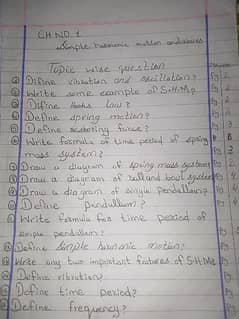 CH NO 1
Simple harmonic motion and waves
Topic wise question
Difine vibration and oscillation?
Write some example of S.H.M?
Difine Hooks law?
Define spring motion?
Define restoring force?
Write formula of time period of spring
mass system?
Draw a diagram of spring mass system
Draw a diagram of ball and bowl system
Draw a diagram of simple pendullum?
Define pendullum?
Write formula for time period of
simple pendullum?
Define simple harmonic motion?
Write any two important features of S.H.M?
Define vibration?
Define time period?
Define frequency?